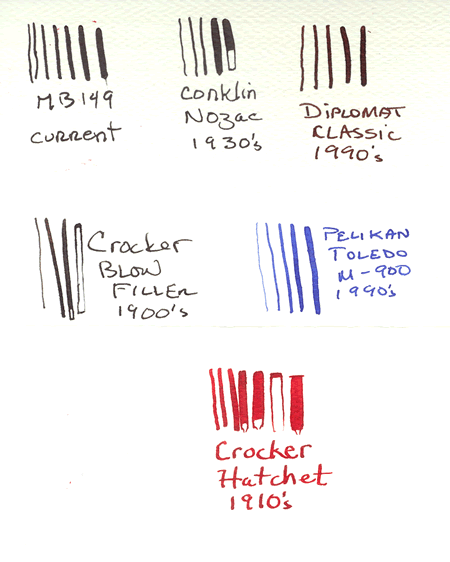 MB149
current
Conklin
Nozac
1930's
Diplomat
Classic
1990's
Crocker
Blow
Filler
1900's
Pelikan
Toledo
M-900
1990's
Crocker
Hatchet
1910's